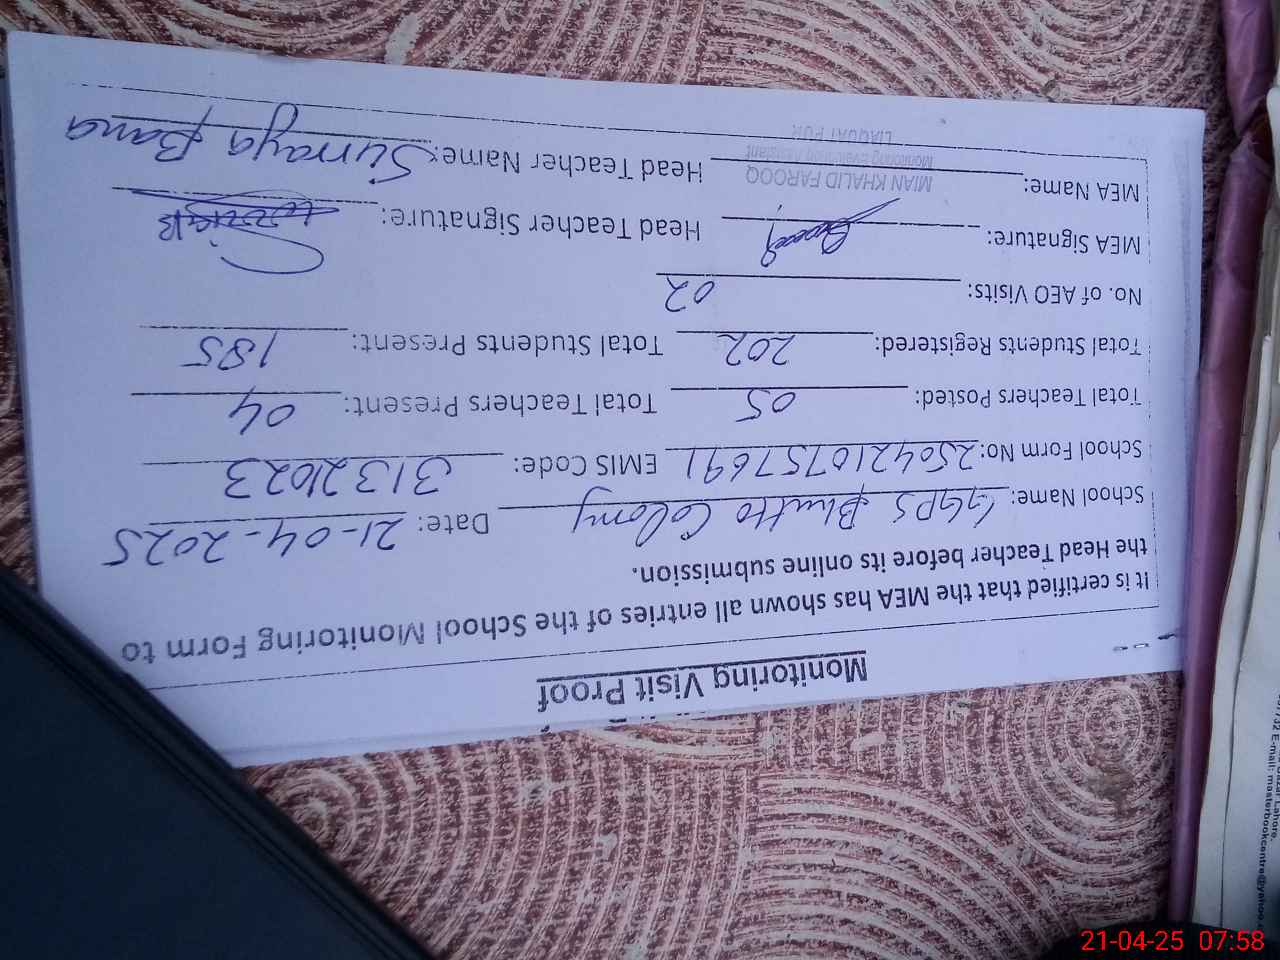 Monitoring Visit Proof
It is certified that the MEA has shown all entries of the School Monitoring Form to
the Head Teacher before its online submission.
School Name: GGPS Bhutto Colony Date: 21-04-2025
School Form No: 2504210757691 EMIS Code: 31321023
Total Teachers Posted: 05 Total Teachers Present: 04
Total Students Registered: 202 Total Students Present: 185
No. of AEO Visits: 02
MEA Signature: Head Teacher Signature:
MEA Name: MIAN KHALID FAROOQ Head Teacher Name: Surraya Bano
Monitoring Evaluating Assistant
LIAQUAT PUR
E-mail: masterbookcentre@yahoo.
21-04-25 07:58